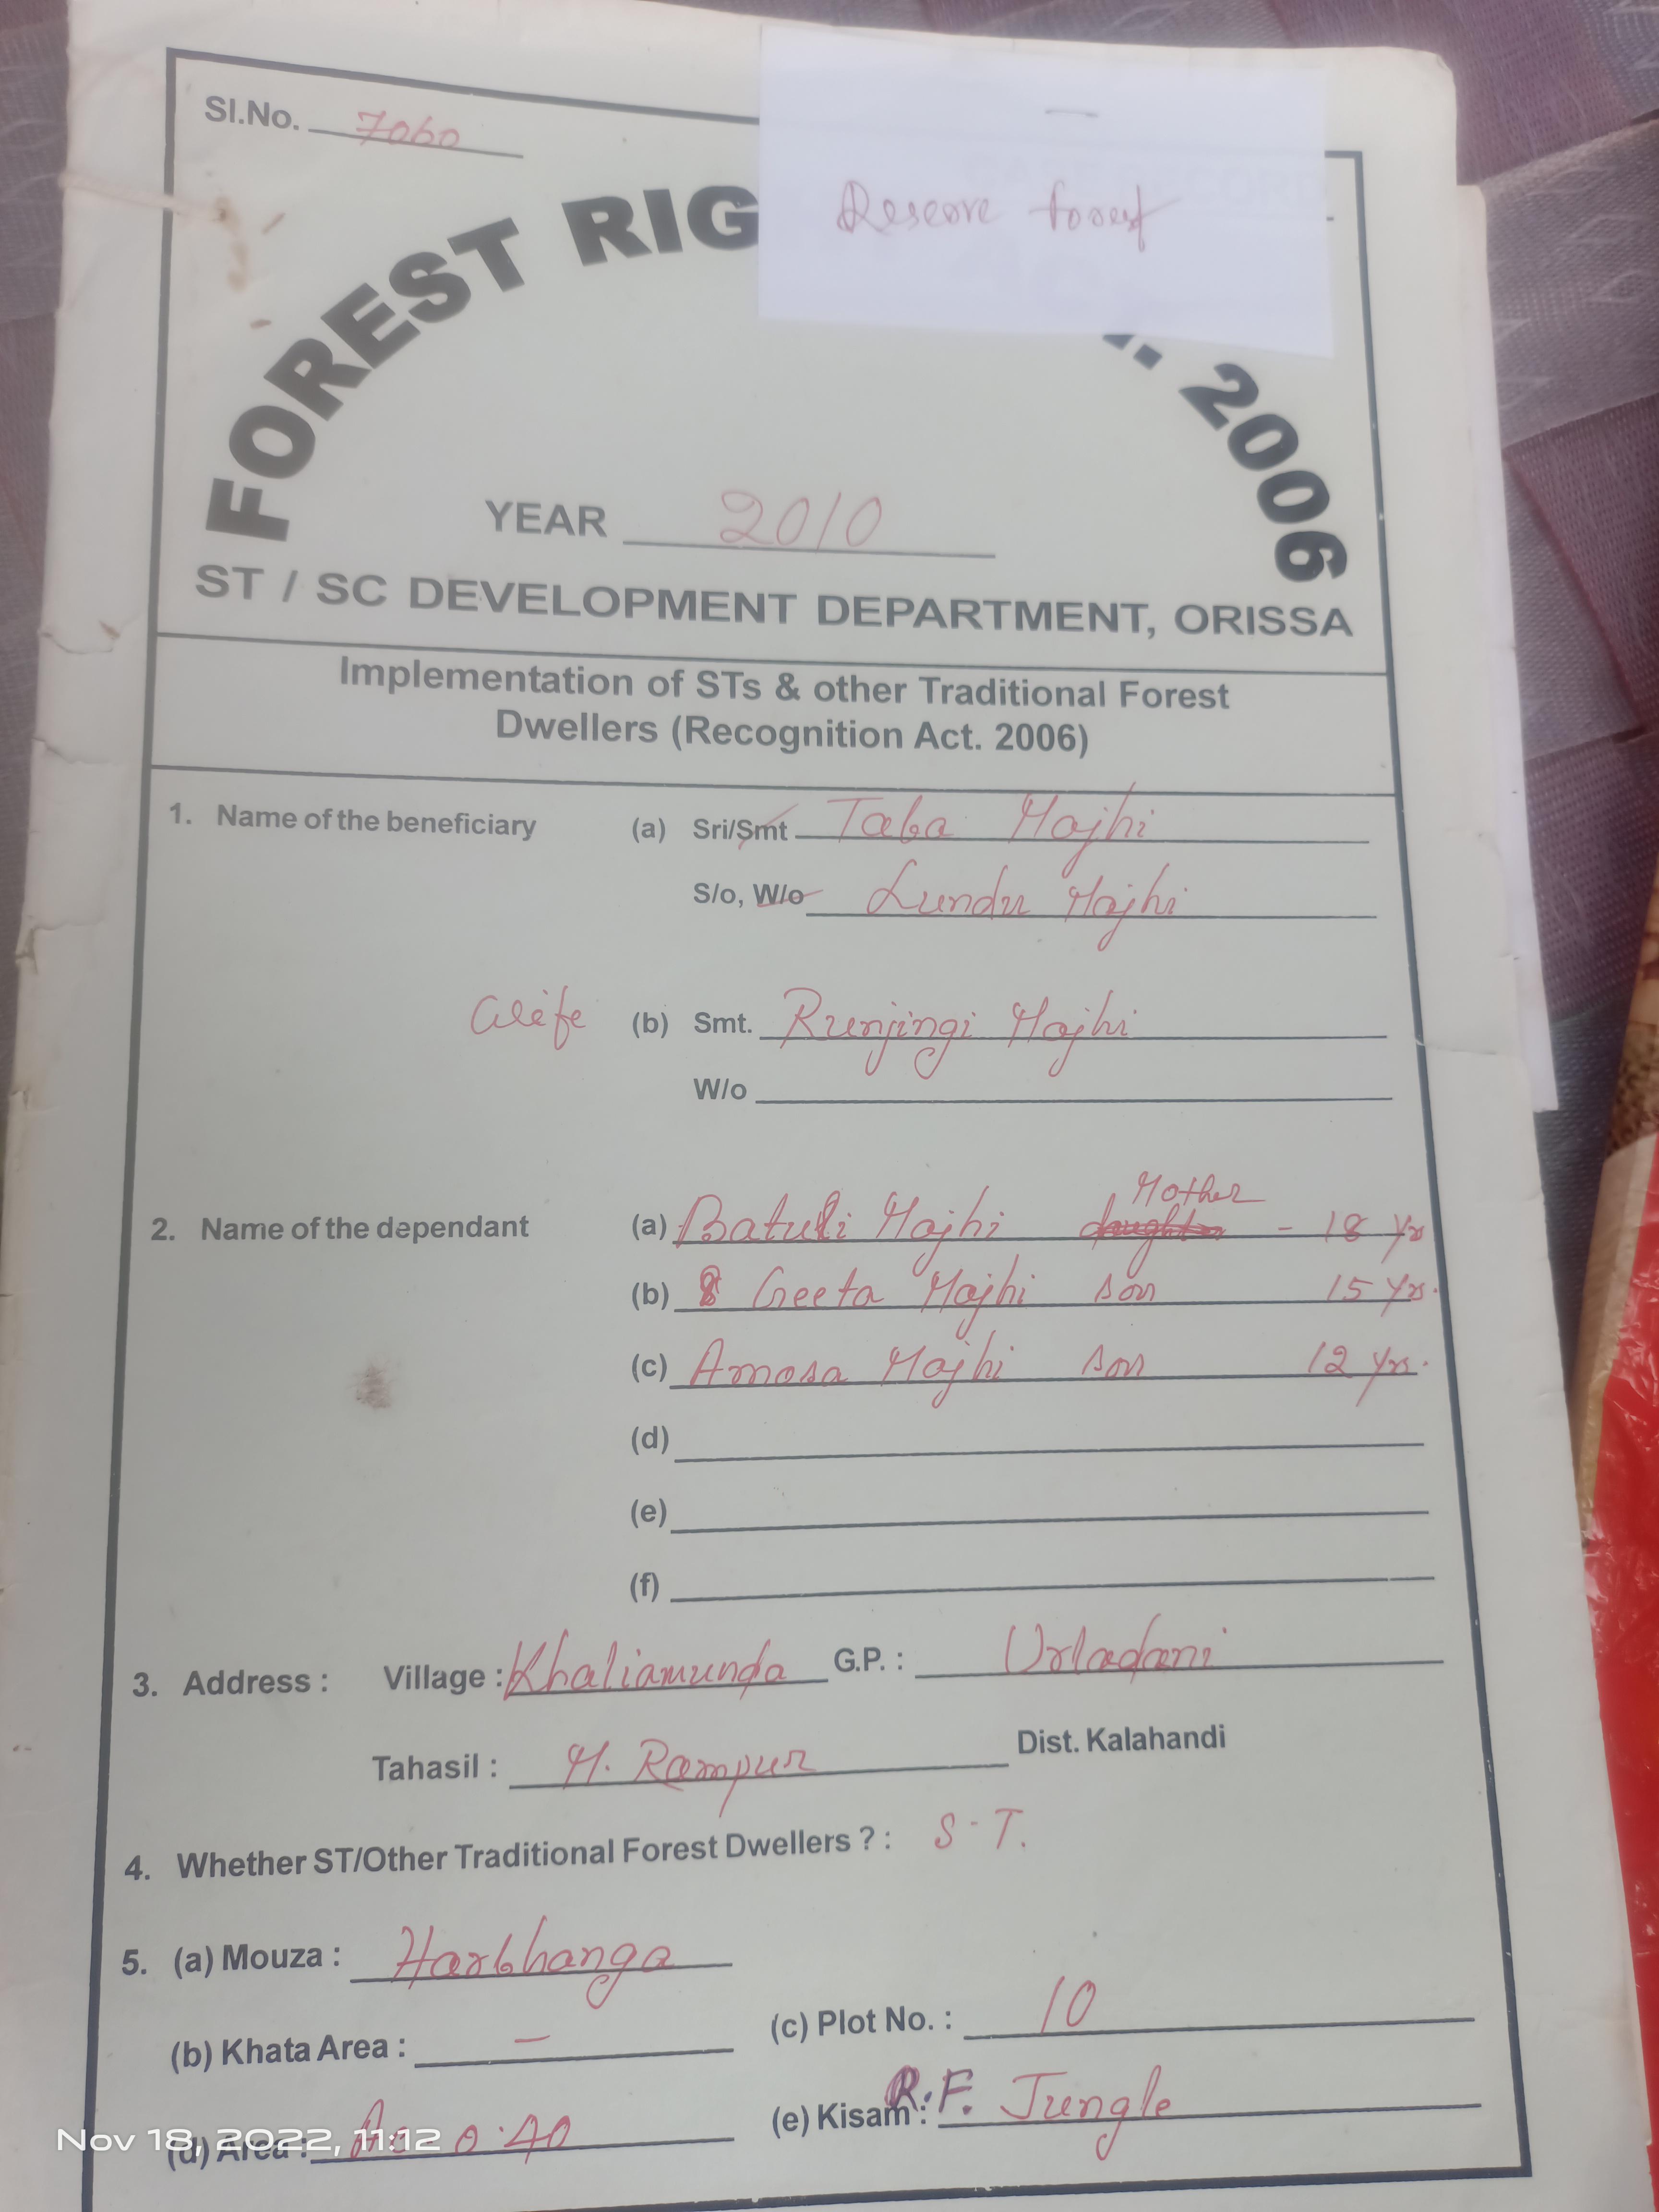 Sl.No. 7060
Reserve forest
FOREST RIG 2006
YEAR 2010
ST / SC DEVELOPMENT DEPARTMENT, ORISSA
Implementation of STs & other Traditional Forest
Dwellers (Recognition Act. 2006)
1. Name of the beneficiary (a) Sri/Smt Taba Majhi
S/o, W/o Lundu Majhi
Wife (b) Smt. Runjingi Majhi
W/o
Mother
2. Name of the dependant (a) Batuli Majhi daughter - 18 Yrs
(b) Geeta Majhi son 15 Yrs.
(c) Amosa Majhi son 12 Yrs.
(d)
(e)
(f)
3. Address : Village : Khaliamunda G.P. : Urladani
Tahasil : M. Rampur Dist. Kalahandi
4. Whether ST/Other Traditional Forest Dwellers ? : S-T.
5. (a) Mouza : Harbhanga
(b) Khata Area : — (c) Plot No. : 10
(d) Area : Ac- 0.40 (e) Kisam : R.F. Jungle
Nov 18, 2022, 11:12